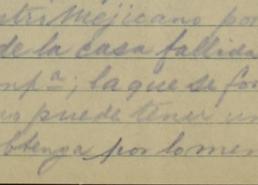 tri Mejicano por
de la casa fallida
mpª; la que se for
puede tener un
btenga por lo men